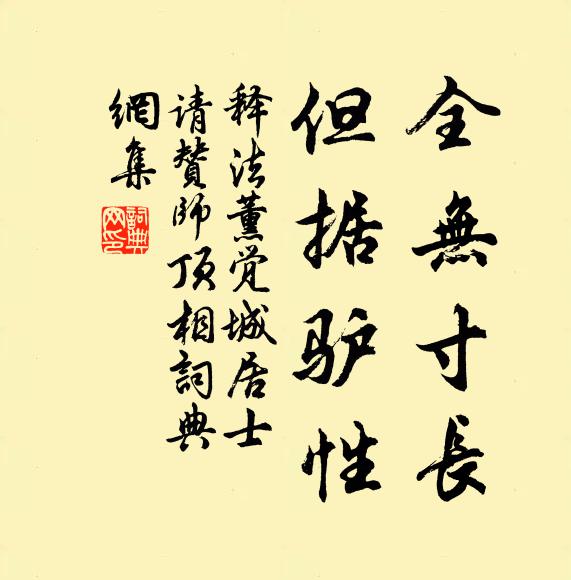 全無寸長
但据驴性
释法薰觉城居士
请赞师顶相詞典
網集
詞典
网印